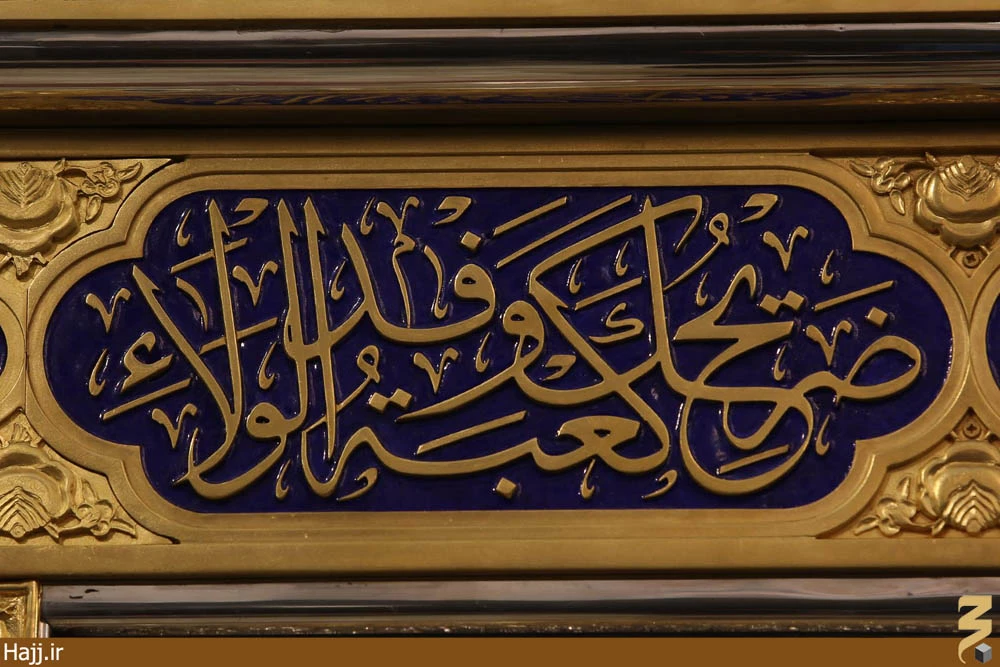 ضريحك كعبة وفد الولاء
Hajj.ir